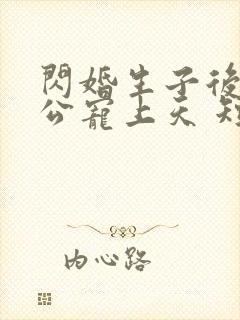 閃婚生子後
公寵上天 短
内心路